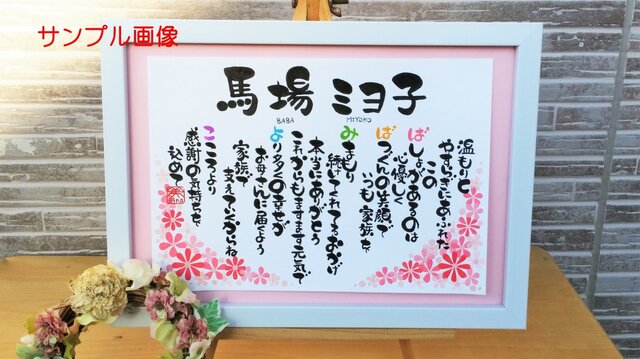 サンプル画像
馬場 ミヨ子
BABA MIYOKO
温もりと
やすらぎにあふれた
この
ばしょがあるのは
心優しく
ばつぐんの笑顔で
いつも家族を
みまもり
続けてくれてるおかげ
本当にありがとう
これからもますます元気で
より多くの幸せが
お母さんに届くよう
家族で
支えていくからね
こころより
感謝の気持ちを
込めて